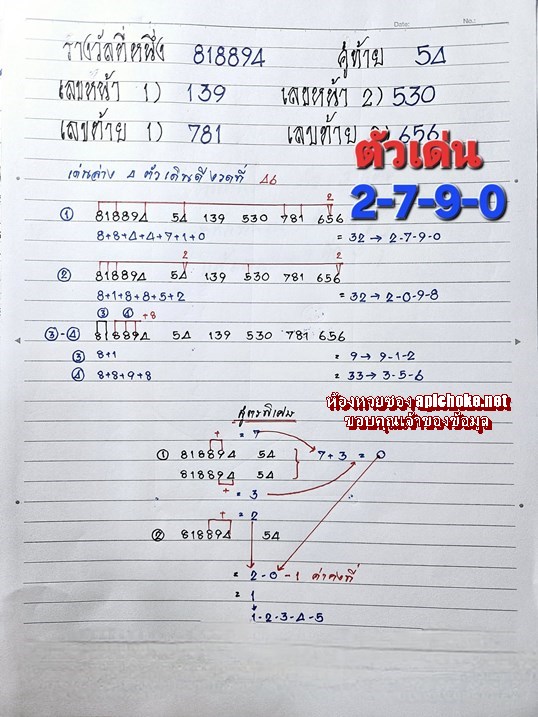 Date: No.:
รางวัลที่หนึ่ง 818894 คู่ท้าย 54
เลขหน้า 1) 139 เลขหน้า 2) 530
เลขท้าย 1) 781 เลขท้าย 2) 656
ตัวเด่น
2-7-9-0
เด่นล่าง 4 ตัวเดินดีงวดที่ 46
2
① 818894 54 139 530 781 656
8+8+4+4+7+1+0 = 32 → 2-7-9-0
2 2
② 818894 54 139 530 781 656
8+1+8+8+5+2 = 32 → 2-0-9-8
③ ④ +8
③-④ 818894 54 139 530 781 656
③ 8+1 = 9 → 9-1-2
④ 8+8+9+8 = 33 → 3-5-6
ห้องหวยซอง apichoke.net
ขอบคุณเจ้าของข้อมูล
สูตรพิเศษ
+ = 7
① 818894 54 7+3 = 0
818894 54
+ = 3
+ = 2
② 818894 54
= 2-0-1 ค่าคงที่
= 1
1-2-3-4-5